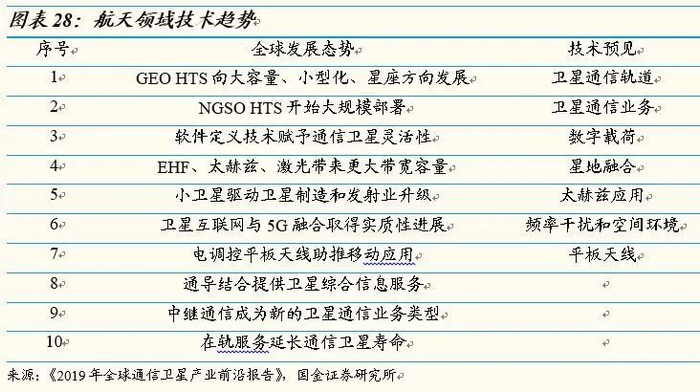 图表 28：航天领域技术趋势
序号 全球发展态势 技术预见
1 GEO HTS 向大容量、小型化、星座方向发展 卫星通信轨道
2 NGSO HTS 开始大规模部署 卫星通信业务
3 软件定义技术赋予通信卫星灵活性 数字载荷
4 EHF、太赫兹、激光带来更大带宽容量 星地融合
5 小卫星驱动卫星制造和发射业升级 太赫兹应用
6 卫星互联网与 5G 融合取得实质性进展 频率干扰和空间环境
7 电调控平板天线助推移动应用 平板天线
8 通导结合提供卫星综合信息服务
9 中继通信成为新的卫星通信业务类型
10 在轨服务延长通信卫星寿命
来源：《2019 年全球通信卫星产业前沿报告》，国金证券研究所